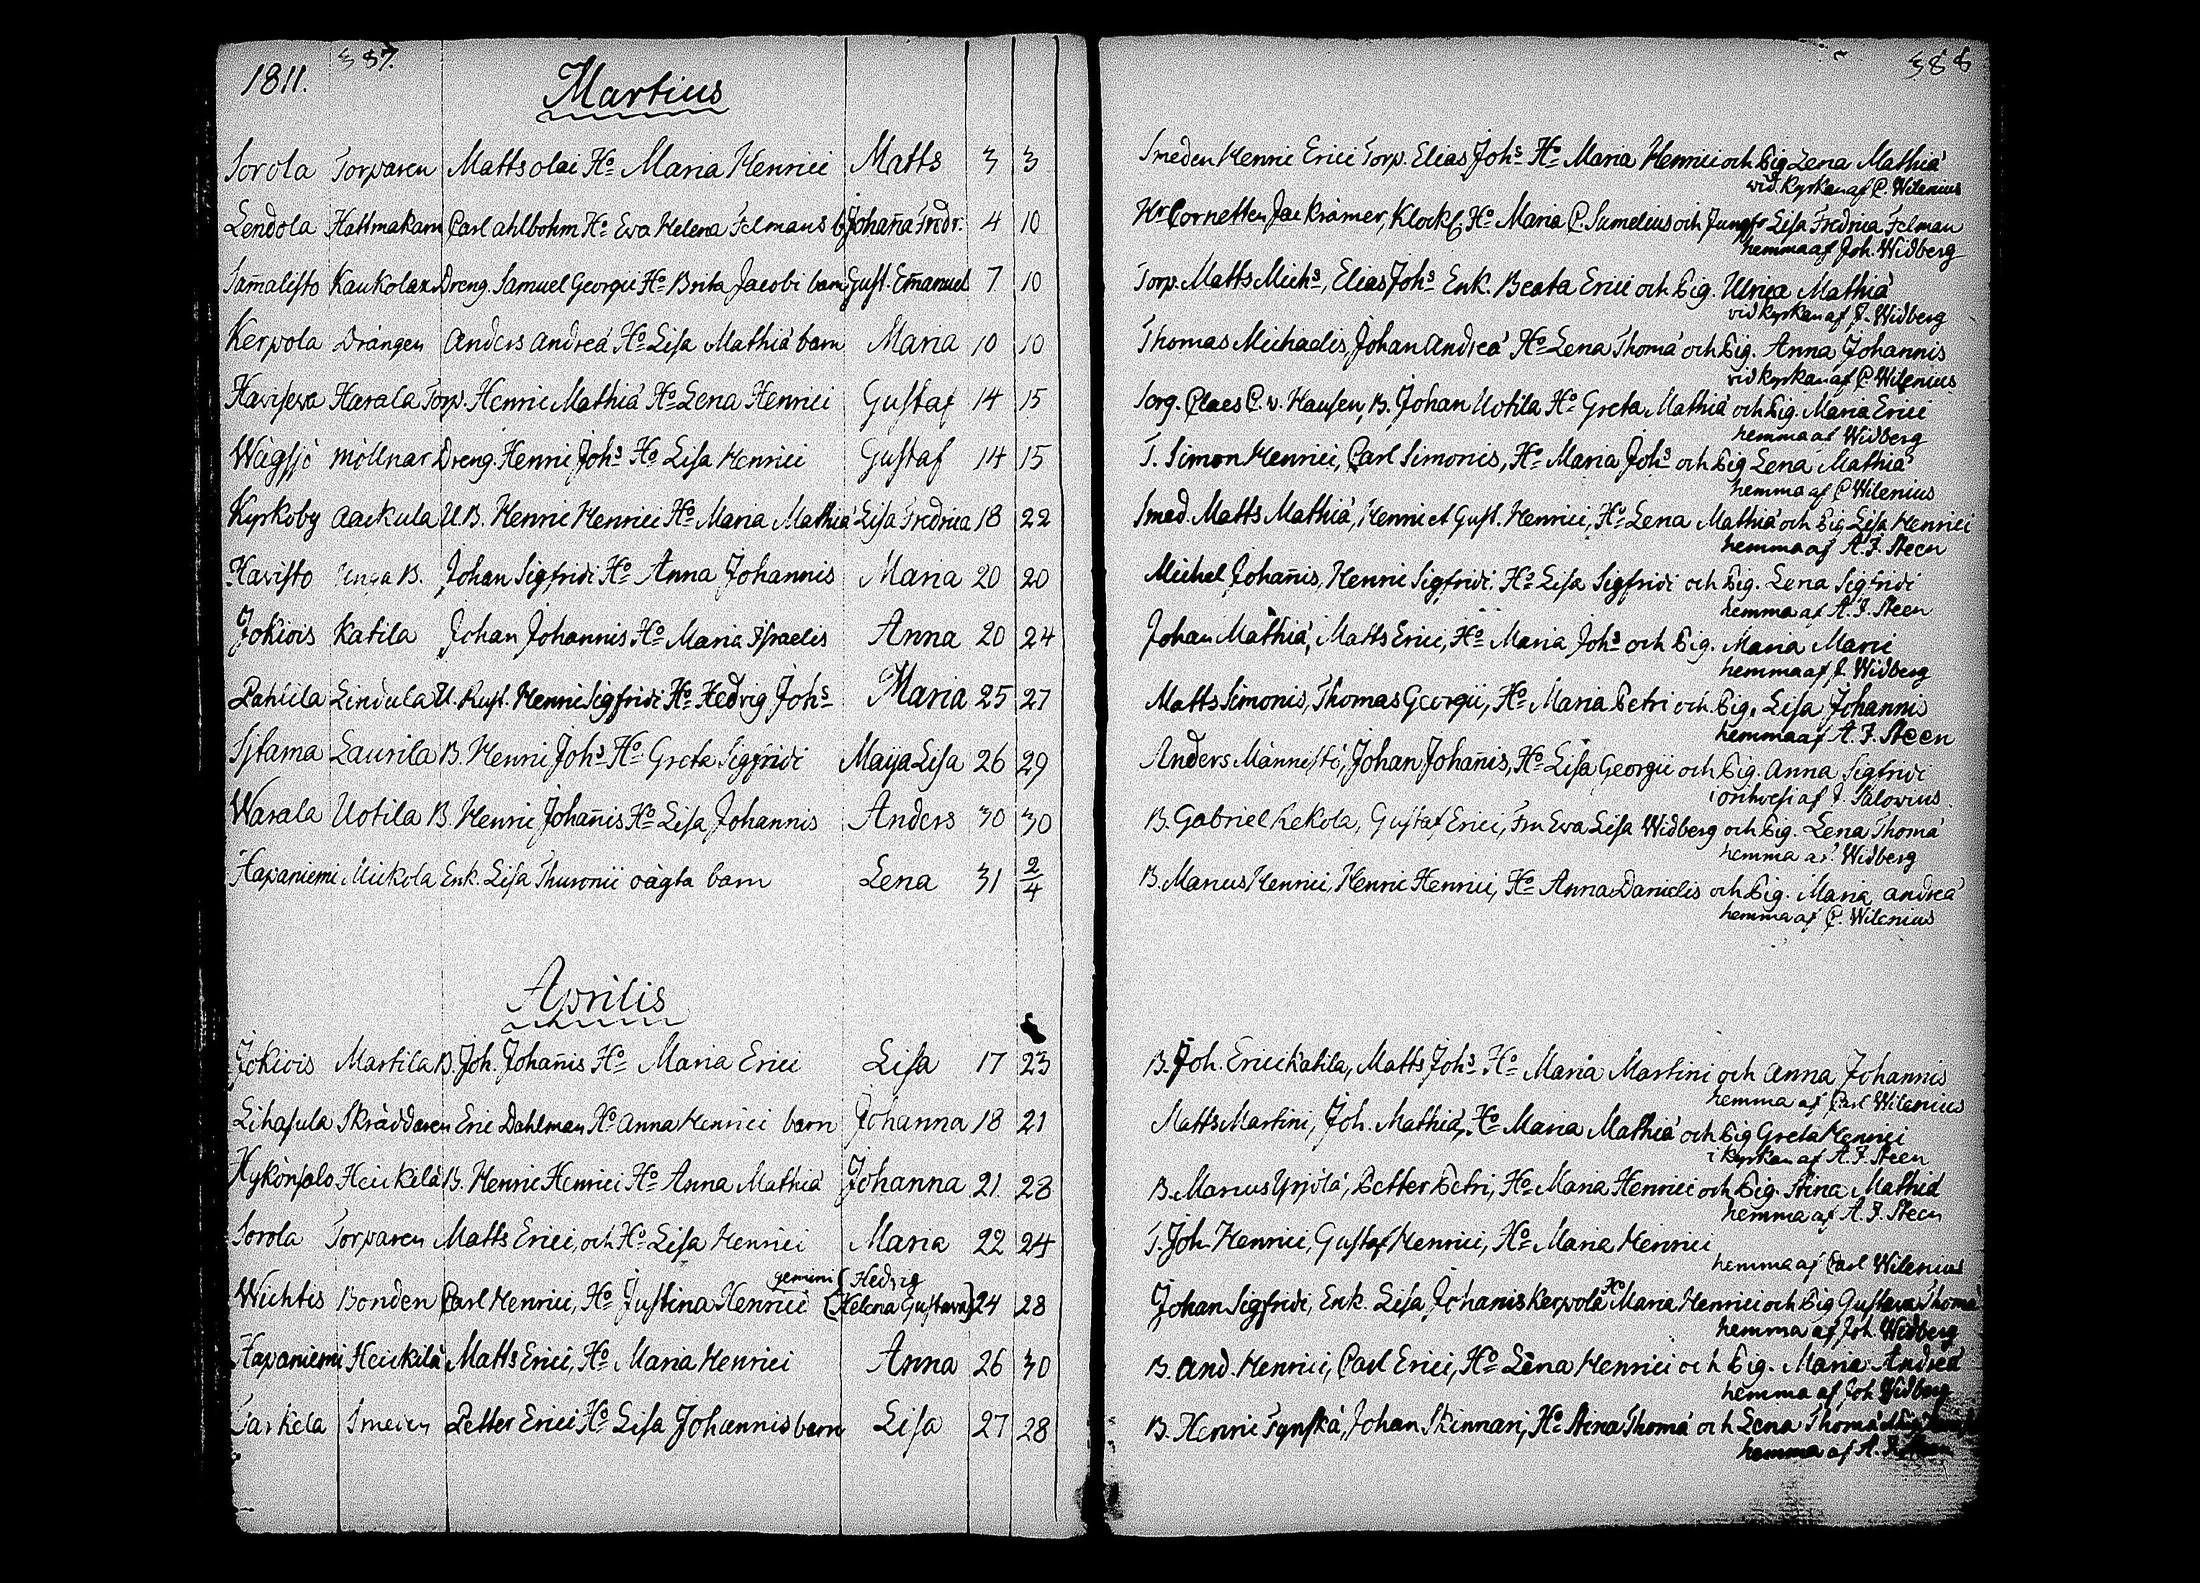 1811. 387.
Martius
Sorola Torparen Matts olai Ho Maria Henrici Matts 3 3
Lendola Hattmakarn Carl ahlbohm Ho Eva Helena Felmans b Johana Fredr. 4 10
Samalisto Kaukolax Dreng. Samuel Georgii Ho Brita Jacobi barn Gust. Emanuel 7 10
Kerpola Drängen Anders Andreä Ho Lisa Mathiä barn Maria 10 10
Harala Torp. Henric Mathiä Ho Lena Henrici Gustaf 14 15
Wägsjö möllnar Dreng. Henric Johs Ho Lisa Henrici Gustaf 14 15
Kyrkoby Aackula U.B. Henric Henrici Ho Maria Mathiä Lisa Fredrica 18 22
Havisto Unga B. Johan Sigfridi Ho Anna Johannis Maria 20 20
Jokiois Katila Johan Johannis Ho Maria Israelis Anna 20 24
Pahlila Lindula U. Rust. Henric Sigfridi Ho Hedvig Johs Maria 25 27
Sjtama Laurila B. Henric Johs Ho Greta Sigfridi Maija Lisa 26 29
Warala Uotila B. Henric Johanis Ho Lisa Johannis Anders 30 30
Hapaniemi Mickola Enk. Lisa Thuronii oägta barn Lena 31 2/4
Aprilis
Jokiois Martila B. Joh. Johanis Ho Maria Erici Lisa 17 23
Lihasula Skräddaren Eric Dahlman Ho Anna Henrici barn Johanna 18 21
Hykönpalo Heickilä B. Henric Henrici Ho Anna Mathiä Johanna 21 28
Sorola Torparen Matts Erici, och Ho Lisa Henrici Maria 22 24
gemini { Hedvig
Wichtis Bonden Carl Henrici, Ho Justina Henrici { Helena Gustava } 24 28
Hapaniemi Heickilä Matts Erici, Ho Maria Henrici Anna 26 30
Smeden Petter Erici Ho Lisa Johannis barn Lisa 27 28
388
Smeden Henric Erici Torp. Elias Johs Ho Maria Henrici och Pig Lena Mathiä
vid Kyrkan af C. Wilenius
Hr Cornetten Jac Krämer, Klock Ho Maria C. Sumelius och Jungfr Lisa Fredrica Felman
hemma af Joh. Widberg
Torp. Matts Michs, Elias Johs Enk. Beata Erici och Pig. Ulrica Mathiä
vid kyrkan af J. Widberg
Thomas Michaelis, Johan Andreä Ho Lena Thomä och Pig. Anna Johannis
vid kyrkan af C. Wilenius
Serg. Claes C. v. Hausen, B. Johan Uotila Ho Greta Mathiä och Pig. Maria Erici
hemma af Widberg
T. Simon Henrici, Carl Simonis, Ho Maria Johs och Pig Lena Mathiä
hemma af C Wilenius
Smed. Matts Mathiä, Henric et Gust. Henrici, Ho Lena Mathiä och Pig Lisa Henrici
hemma af A. F. Steen
Michel Johanis, Henric Sigfridi Ho Lisa Sigfridi och Pig. Lena Sigfridi
hemma af A. F. Steen
Johan Mathiä, Matts Erici, Ho Maria Johs och Pig. Maria Marci
hemma af J. Widberg
Matts Simonis, Thomas Georgii, Ho Maria Petri och Pig. Lisa Johannis
hemma af A. F. Steen
Anders Männistö, Johan Johanis, Ho Lisa Georgii och Pig. Anna Sigfridi
i orihvesi af J. Salovius
B. Gabriel Lekola, Gustaf Erici, Fru Eva Lisa Widberg och Pig. Lena Thomä
hemma af Widberg
B. Marcus Henrici, Henric Henrici, Ho Anna Danielis och Pig. Maria Andreä
hemma af C. Wilenius
B. Joh. Erici Katila, Matts Johs Ho Maria Martini och Anna Johannis
hemma af Carl Wilenius
Matts Martini, Joh. Mathiä, Ho Maria Mathiä och Pig Greta Henrici
i kyrkan af A. F. Steen
B. Marcus Yrjölä, Petter Petri, Ho Maria Henrici och Pig. Stina Mathiä
hemma af A. F. Steen
T. Joh Henrici, Gustaf Henrici, Ho Maria Henrici
hemma af Carl Wilenius
Johan Sigfridi, Enk. Lisa Johanis Kerpola Ho Maria Henrici och Pig Gustava Thomä
hemma af Joh. Widberg
B. And. Henrici, Carl Erici, Ho Lena Henrici och Pig. Maria Andreä
hemma af Joh Widberg
B. Henric Tynskä, Johan Skinnari, Ho Stina Thomä och Lena Thomä
hemma af A. F. Steen